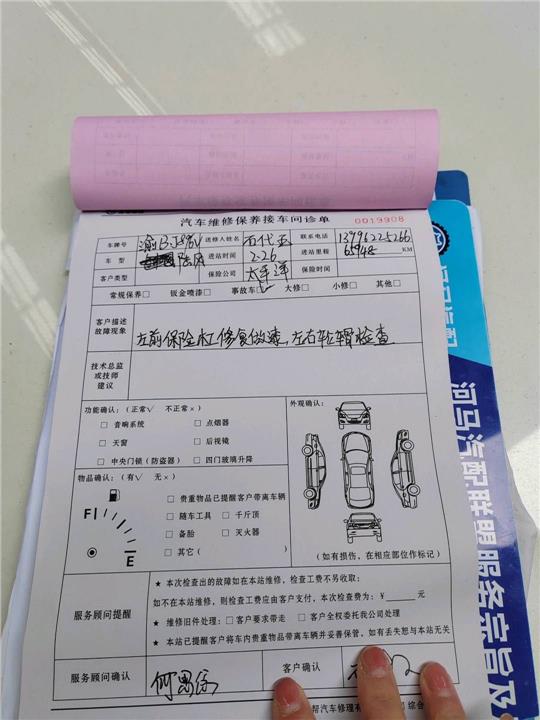 汽车维修保养接车问诊单 0019908
车牌号 送修人姓名 联系电话 13996225266
车型 进站时间 2-26 进站里程 65948 KM
客户类型 保险公司 太平洋 保险时间
常规保养□ 钣金喷漆□ 事故车□ 大修□ 小修□ 其他□
客户描述
故障现象
左前保险杠修复做漆,左右轮骨检查
技术总监
或技师
建议
功能确认:(正常√ 不正常×)
□ 音响系统 □ 点烟器
□ 天窗 □ 后视镜
□ 中央门锁(防盗器) □ 四门玻璃升降
外观确认:
物品确认:(有√ 无×)
□ 贵重物品已提醒客户带离车辆
□ 随车工具 □ 千斤顶
□ 备胎 □ 灭火器
□ 其它( )
F
E
(如有损伤,在相应部位作标记)
服务顾问提醒
★ 本次检查出的故障如在本站维修,检查工费不另收取;
如不在本站维修,则检查工费应由客户支付,本次检查费为:¥ 元
★ 维修旧件处理:□ 客户要求带走 □ 客户全权委托我公司处理
★ 本站已提醒客户将车内贵重物品带离车辆并妥善保管,如有丢失恕与本站无关
服务顾问确认 客户确认
帮汽车修理有
综合
河马汽配联盟服务宗旨及